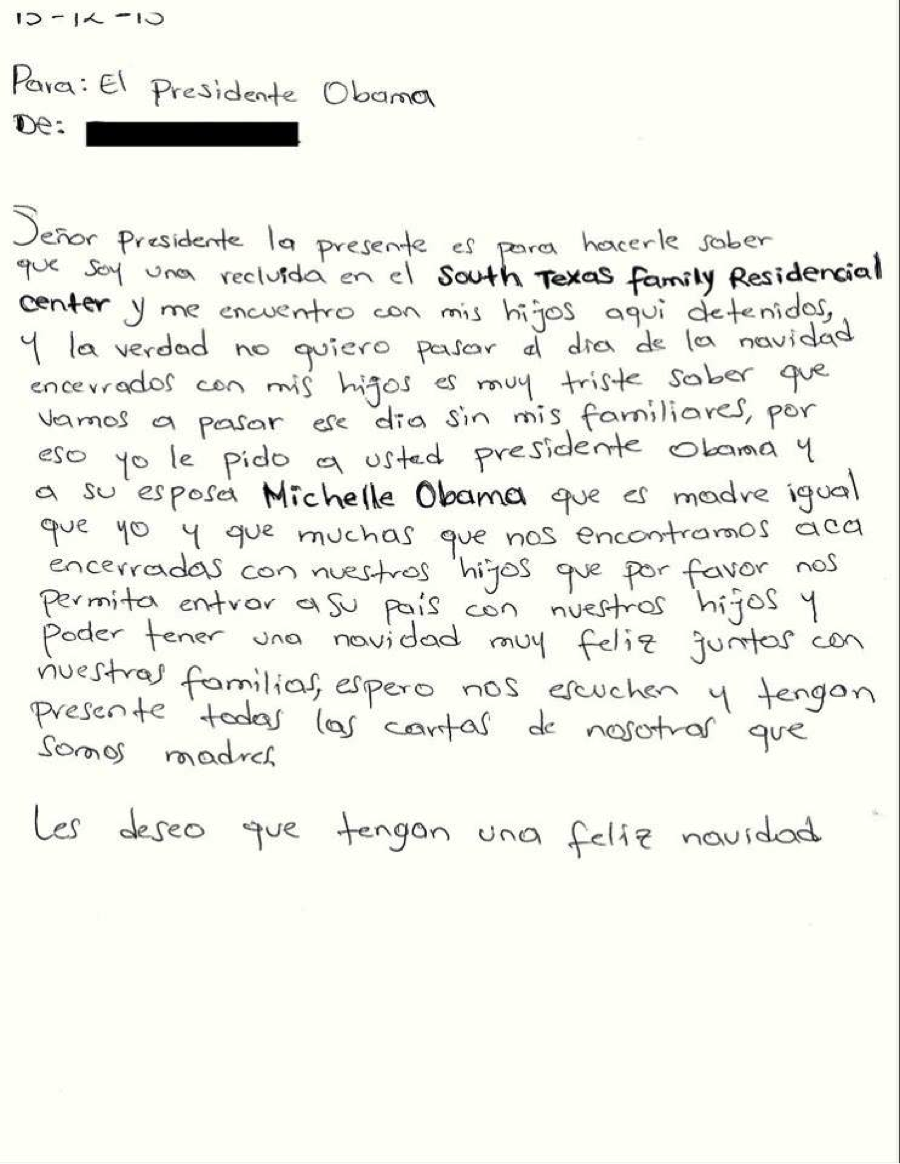 Para: El Presidente Obama
De:
Señor Presidente la presente es para hacerle saber
que soy una recluida en el South Texas family Residencial
center y me encuentro con mis hijos aqui detenidos,
y la verdad no quiero pasar el dia de la navidad
encerrados con mis hijos es muy triste saber que
vamos a pasar ese dia sin mis familiares, por
eso yo le pido a usted presidente Obama y
a su esposa Michelle Obama que es madre igual
que yo y que muchas que nos encontramos aca
encerradas con nuestros hijos que por favor nos
permita entrar a su país con nuestros hijos y
poder tener una navidad muy feliz juntos con
nuestras familias, espero nos escuchen y tengan
presente todas las cartas de nosotras que
somos madres
Les deseo que tengan una feliz navidad